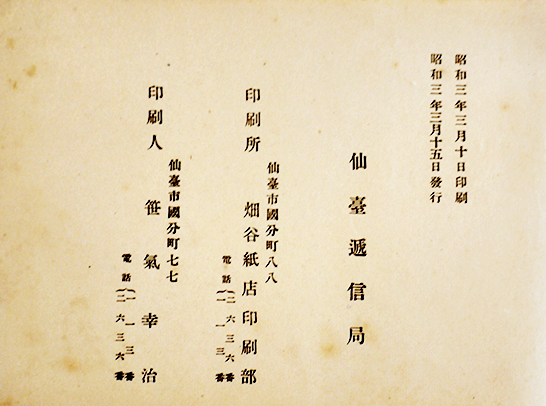 昭和三年三月十日印刷
昭和三年三月十五日發行
仙臺遞信局
仙臺市國分町八八
印刷所 畑谷紙店印刷部
電話(一一三番
二六三六番
仙臺市國分町七七
印刷人 笹氣幸治
電話(一一三番
二六三六番